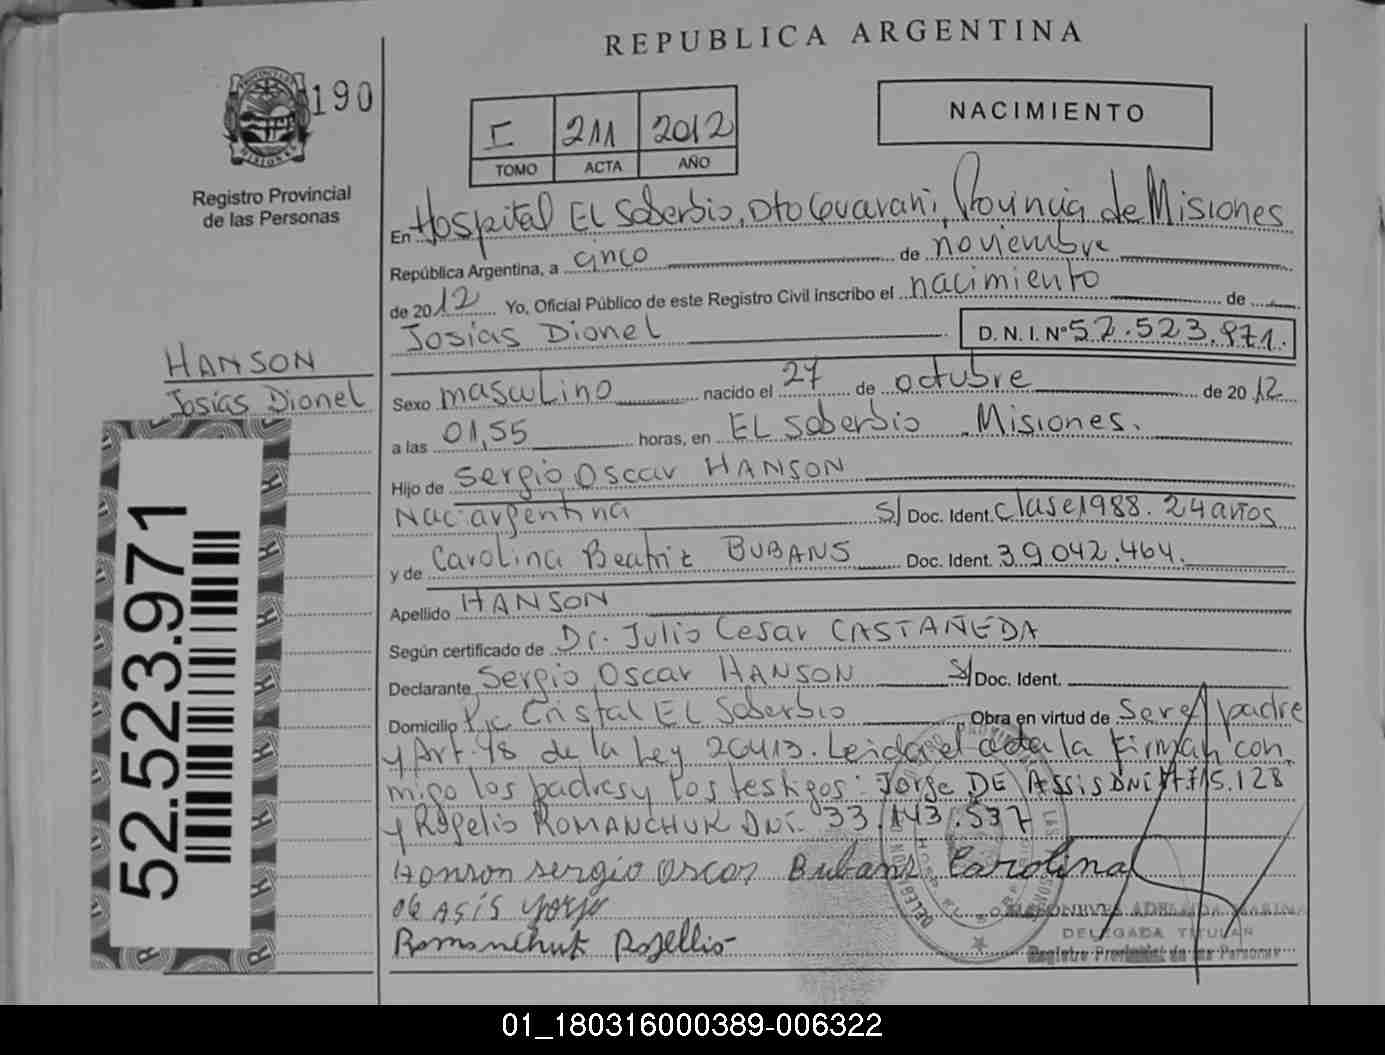 REPUBLICA ARGENTINA
190
I 211 2012
TOMO ACTA AÑO
NACIMIENTO
Registro Provincial
de las Personas
En Hospital El Soberbio, Dto Guarani, Provincia de Misiones
República Argentina, a cinco de noviembre
de 2012 Yo, Oficial Público de este Registro Civil inscribo el nacimiento de
Josias Dionel D.N.I. Nº 52.523.971.
HANSON
Josías Dionel
Sexo masculino nacido el 27 de octubre de 2012
a las 01,55 horas, en El Soberbio Misiones.
Hijo de Sergio Oscar HANSON
Nac argentina S/ Doc. Ident. clase 1988. 24 años
y de Carolina Beatriz BUBANS Doc. Ident. 39.042.464.
Apellido HANSON
Según certificado de Dr. Julio Cesar CASTAÑEDA
Declarante Sergio Oscar HANSON S/ Doc. Ident.
Domicilio Pje Cristal El Soberbio Obra en virtud de Ser el padre
y Art. 48 de la Ley 20413. Leida el acta la firman con
migo los padres y los testigos: Jorge DE ASSIS DNI 128
y Rogelio ROMANCHUK DNI. 33.143.537
Hanson sergio oscar Bubans Carolina
de Asís
Romanchuk Rogellio
DELEGADA TITULAR
Registro Provincial de las Personas
52.523.971
01_180316000389-006322